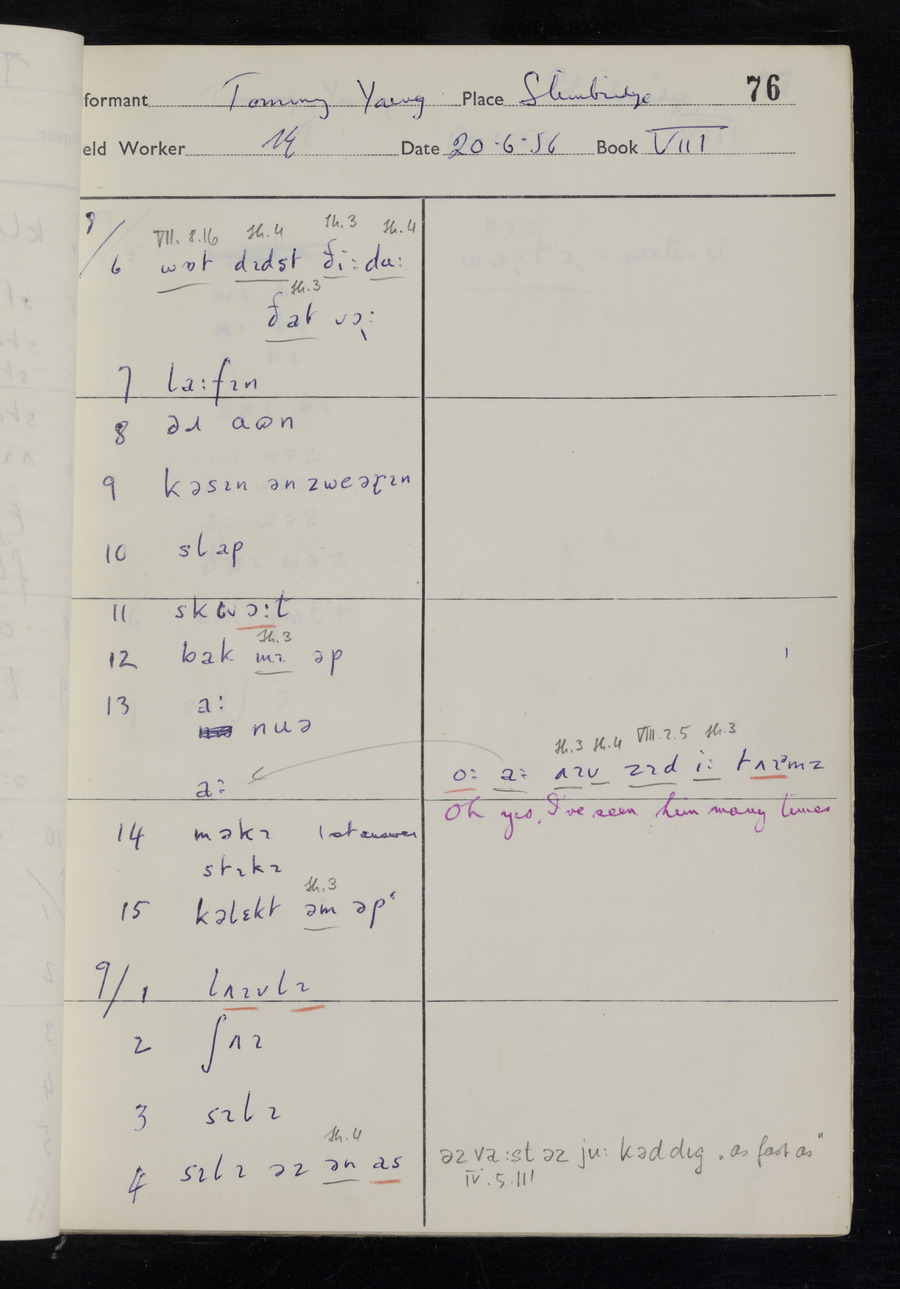 formant Tommy Young Place Slimbridge 76
eld Worker Date 20·6·56 Book VIII
8/
VII. 8.16 Sh.4 Sh.3 Sh.4
6 wɒt dɪdst ði: du:
Sh.3
ðat vɔ:
7 la:fɪn
8 əɹ aɷn
9 kəsɪn ən zweəɽɪn
10 slap
11 skwɔ:t
Sh.3
12 bak mɪ əp
13 a:
nuə
Sh.3 Sh.4 VIII.2.5 Sh.3
o: a: ʌɪv zɪd i: tʌɪmz
a:
Oh yes, I've seen him many times
14 məkɪ 1st answer
stɪkɪ
Sh.3
15 kəlɛkt əm əp
9/1 lʌɪvlɪ
2 ʃʌɪ
3 sɪlɪ
Sh.4
4 sɪlɪ əz ən as
əz va:st əz ju: kəd dɪg "as fast as"
IV.5.III